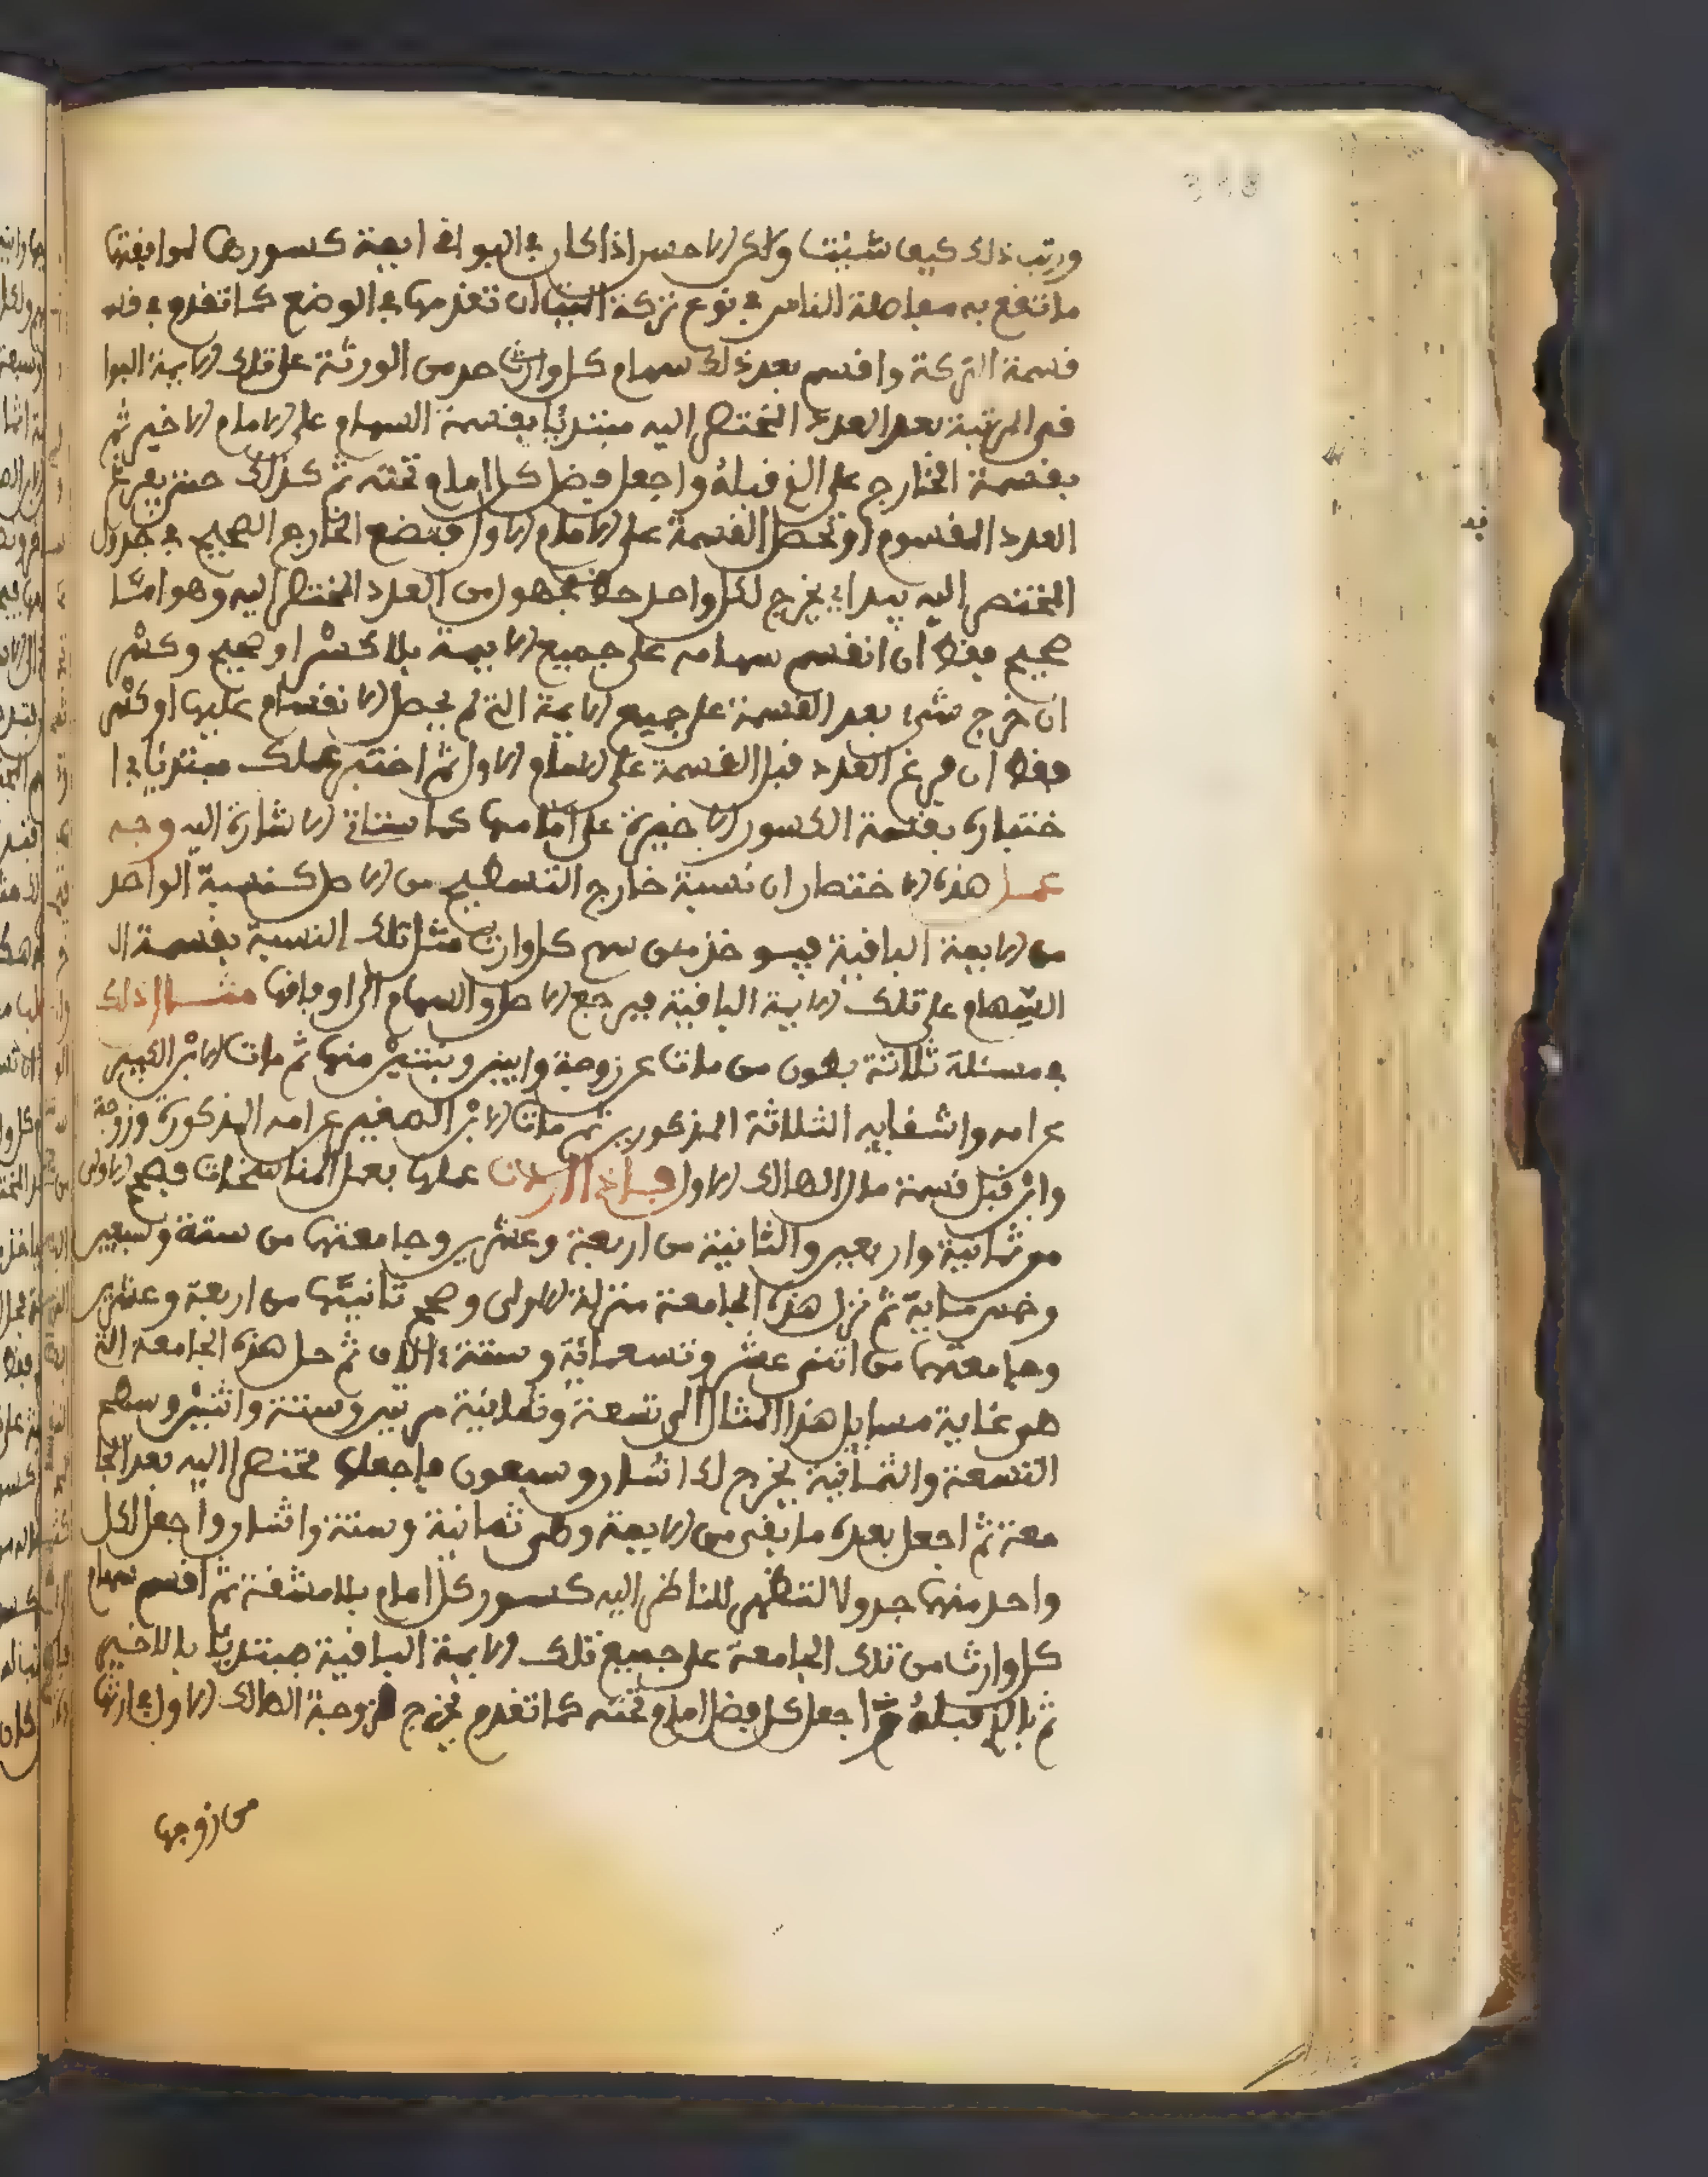 ورتب ذلك كيف شئت ولكن الاحسن اذا كان في البواقي ايمة كسورها لموافقتها
ما تقع به معاملة الناس في نوع تركة الميت ان تقدمها في الوضع كما تقدم في
قسمة التركة واقسم بعد ذلك سهام كل وارث حد من الورثة على تلك الايمة البوا
قي المرتبة بعد العدد المختصر اليه مبتدئا بقسمة السهام على الامام الاخير ثم
بقسمة الخارج على الذي قبله واجعل فضل كل امام تحته ثم كذلك حتى يفرغ
العدد المقسوم او تحصل القسمة على الامام الاول فتضع الخارج الصحيح في جدول
المختصر اليه فبذلك يخرج لكل واحد حظه مجهول من العدد المختصر اليه وهو اما
صحيح فقط ان انقسم سهامه على جميع الايمة بلا كسر او صحيح وكسر
ان خرج شيء بعد القسمة على جميع الايمة التي لم يحصل الانقسام عليها او كسر
فقط ان فرغ العدد قبل القسمة على الامام الاول ثم اختبر عملك مبتدئا في ا
ختباره بقسمة الكسور الاخيرة على امامها كما ستاتي الاشارة اليه وجه
عمل هذه الاختصار ان نسبة خارج التسطيح من الاصل كنسبة الواحد
من الايمة الباقية فيوخذ من سهم كل وارث مثل تلك النسبة بقسمة ال
السهام على تلك الايمة الباقية فيرجع الاصل والسهام الى اوفاقها مثال ذلك
في مسئلة ثلاثة بطون من مات عن زوجة وابنين وبنتين منها ثم مات الابن الكبير
عن امه واشقايه الثلاثة المذكورين ثم مات الابن الصغير عن امه المذكورة وزوجة
وابن قبل قسمة مال الهالك الاول فاذا اردت عملها بعمل المناسخات فصحح الاولى
من ثمانية واربعين والثانية من اربعة وعشرين وجامعتها من ستة وسبعين
وخمس ماية ثم نزل هذه الجامعة منزلة الاولى وصحح ثانيتها من اربعة وعشرين
وجامعتها من اثنى عشر وتسعمائة وستة الاف ثم حل هذه الجامعة التي
هي غاية مسايل هذا المثال الى تسعة وثمانية مرتين وستة واثنين وسطح
التسعة والثمانية يخرج لك اثنان وسبعون فاجعله مختصرا اليه بعد الجا
معة ثم اجعل بعده ما بقي من الايمة وهي ثمانية وستة واثنان واجعل لكل
واحد منها جدولا لتظهر للناظر اليه كسور كل امام بلا مشقة ثم اقسم سهام
كل وارث من تلك الجامعة على جميع تلك الايمة الباقية مبتدئا بالاخير
ثم بالذي قبله ثم اجعل كل فضل امام تحته كما تقدم يخرج لزوجة الهالك الاول في ارثها
من زوجها